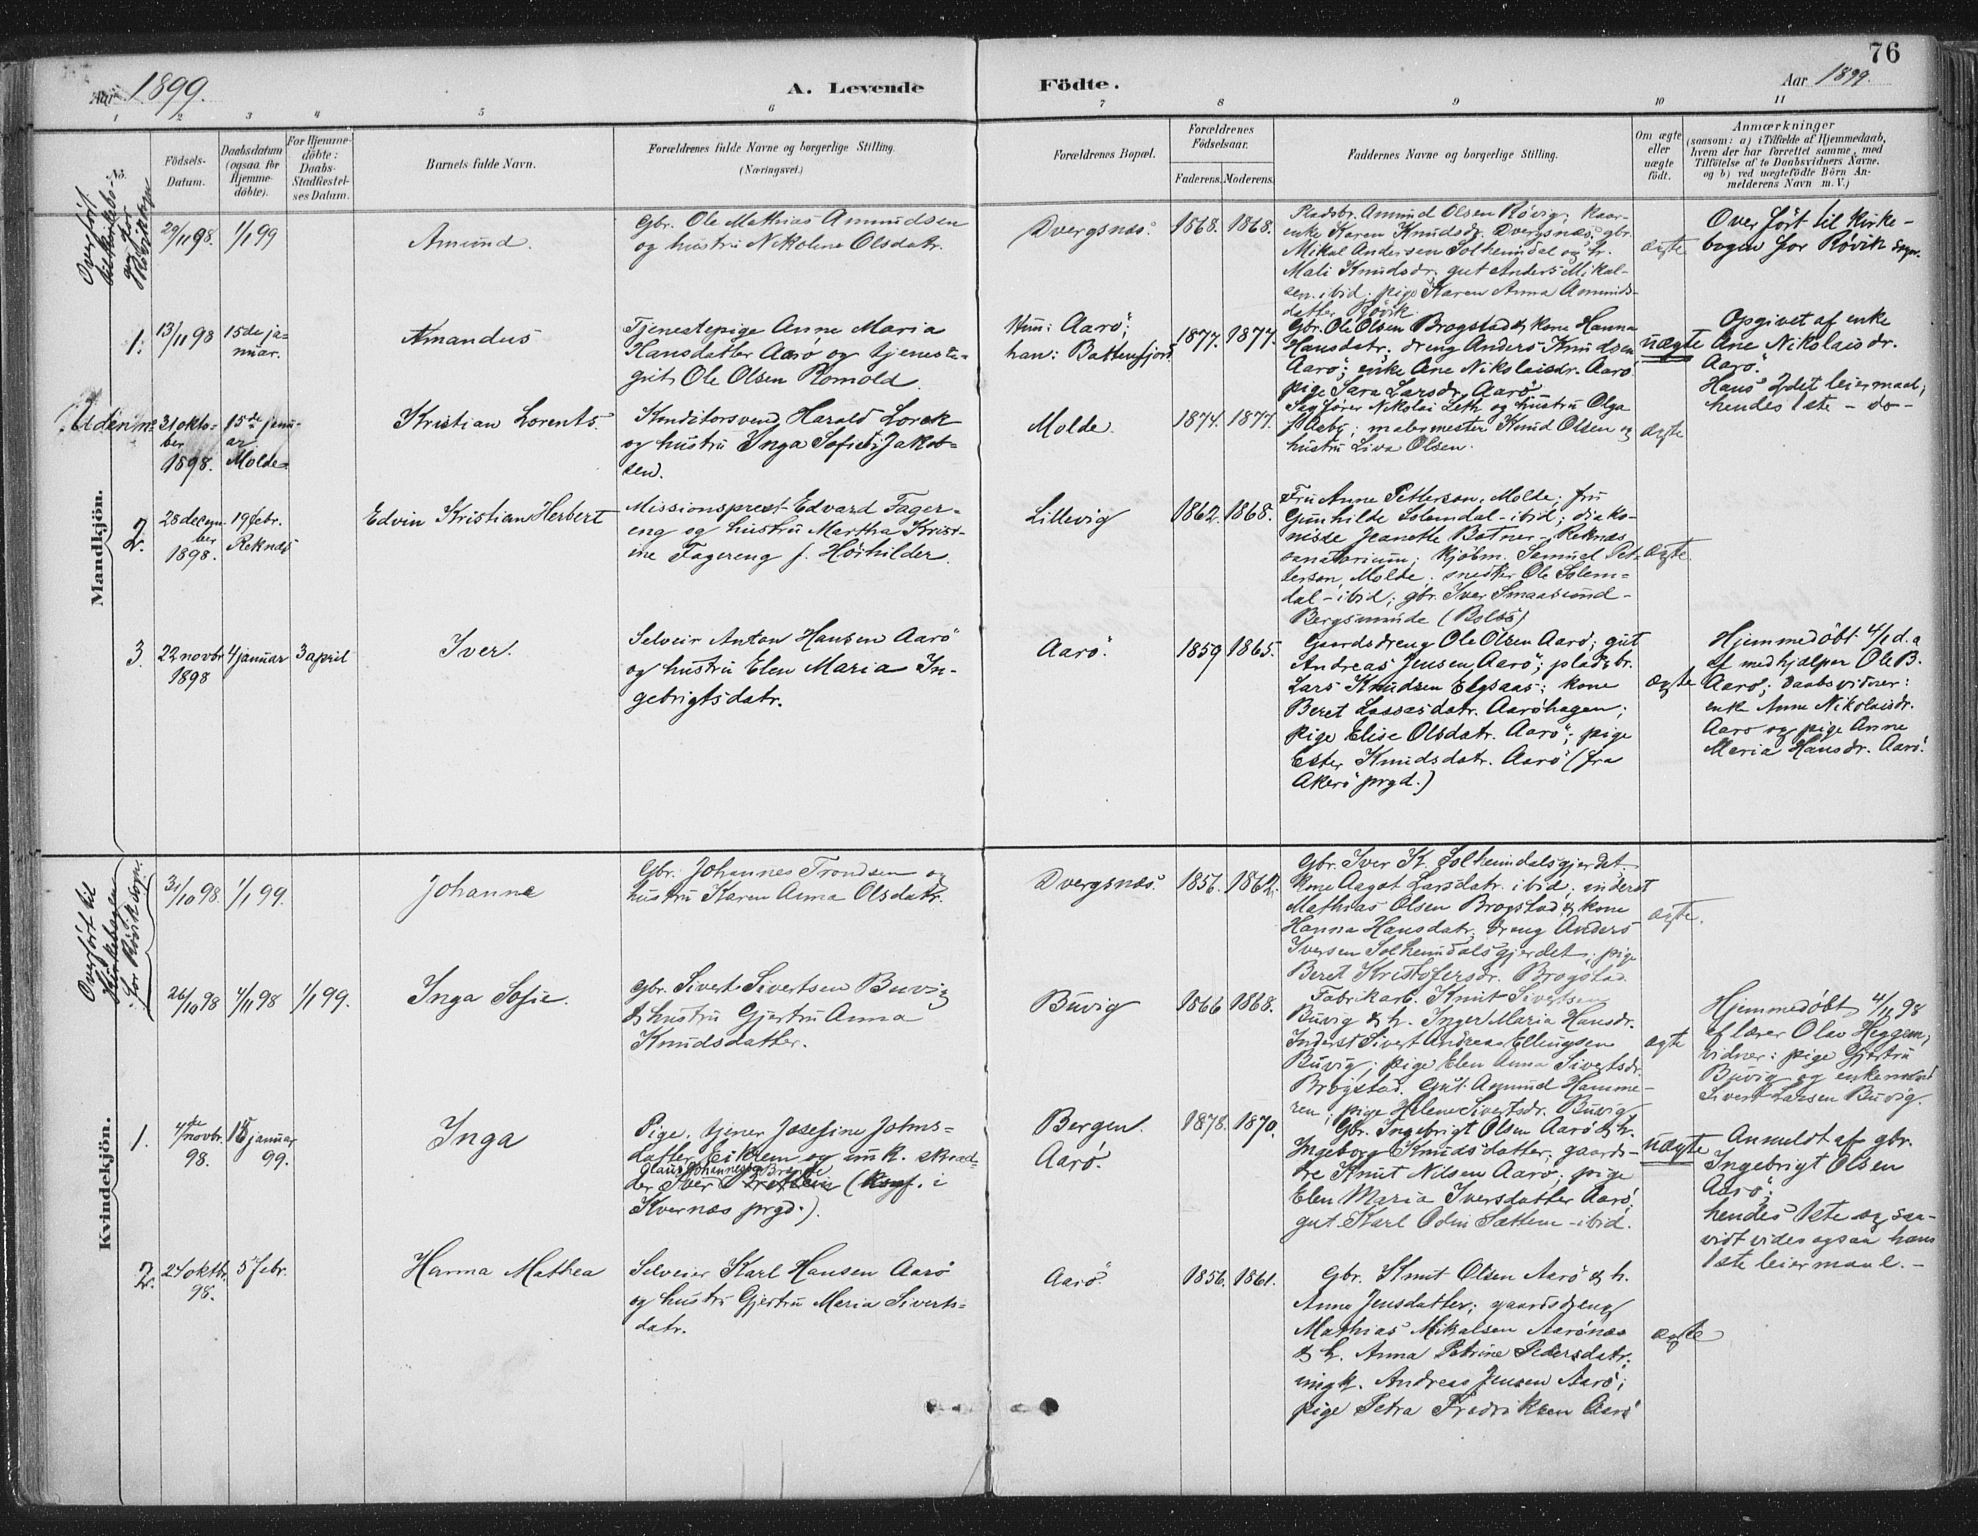 76
Aar 1899.
A. Levende
Födte.
Aar 1899.
1 2 3 4 5 6 7 8 9 10 11
No.
Födsels-
Datum.
Daabsdatum
(ogsaa for
Hjemme-
döbte).
For Hjemme-
döbte:
Daabs-
Stadfæstel-
ses Datum.
Barnets fulde Navn.
Forældrenes fulde Navne og borgerlige Stilling.
(Næringsvei.)
Forældrenes Bopæl.
Forældrenes
Födselsaar.
Faderens. Moderens.
Faddernes Navne og borgerlige Stilling.
Om ægte
eller
uægte
födt.
Anmærkninger
(saasom: a) i Tilfælde af Hjemmedaab,
hvem der har forrettet samme, med
Tilföielse af to Daabsvidners Navne,
og b) ved uægtefödte Börn An-
melderens Navn m. V.)
Mandkjön.
Overfört
til kirkebo-
gen for
Rövik sogn
29/11 98.
1/1 99
Amund.
Gbr. Ole Mathias Amundsen
og hustru Nikoline Olsdatr.
Dvergsnæs.
1868. 1868.
Pladsbr. Amund Olsen Rövig; kaar-
enke Karen Knudsdr. Dvergsnæs; gbr.
Mikal Andersen Solheimdal og h.
Mali Knudsdr; gut Anders Mikal-
sen ibid; pige Karen Anna Amunds-
datter Rövik
ægte
Overfört til kirke-
bogen for Rövik sogn.
1.
13/11 98
15de ja-
nuar.
Amandus
Tjenestepige Anne Maria
Hansdatter Aarö og tjeneste-
gut Ole Olsen Romold.
Hun: Aarö;
han: Battenfjord
1877. 1877.
Gbr. Ole Olsen Brogstad & kone Hanna
Hansdatr; dreng Anders Knudsen
Aarö; enke Ane Nikolaisdr. Aarö
pige Sara Larsdr. Aarö
uægte
Opgivet af enke
Ane Nikolaisdr.
Aarö.
Hans 2det leiermaal;
hendes 1ste - do -
Uden no.
31 okto-
ber
1898.
15de janu-
ar
Molde
Kristian Lorents.
Konditorsvend Harald Lorck
og hustru Inga Sofie f. Jakob-
sen.
Molde.
1874. 1877.
Sagförer Nikolai Leth og hustru Olga
f. Aasby; malermester Knud Olsen og
hustru Liva Olsen.
ægte
2.
28 decem
ber
1898.
19 febr.
Reknæs
Edvin Kristian Herbert
Missionsprest Edvard Fager-
eng og hustru Martha Krist-
ine Fagereng f. Hörhilder.
Lillevig
1862. 1868.
Fru Anne Petterson, Molde; fru
Gunhilde Solemdal - ibid; diako-
nisse Jeanette Botner - Reknæs
sanatorium; kjöbm. Samuel Pet-
terson, Molde; snedker Ole Solem-
dal - ibid; gbr. Iver Smaasund -
Bergsmunde (Bolsö)
ægte.
3.
22 novbr
1898
4 januar
3 april
Iver.
Selveir Anton Hansen Aarö
og hustru Elen Maria In-
gebrigtsdatr.
Aarö.
1859 1865.
Gaardsdreng Ole Olsen Aarö; gut
Andreas Jensen Aarö; pladsbr.
Lars Knudsen Elgsaas; kone
Beret Lassesdatr. Aaröhagen;
pige Elise Olsdatr. Aarö; pige
Ester Knudsdatr. Aarö (fra
Akerö prgd.)
ægte
Hjemmedöbt 4/1 d.a
af medhjælper Ole B.
Aarö; daabsvidner:
enke Anne Nikolaisdr.
Aarö og pige Anne
Maria Hansdr. Aarö.
Kvindekjön.
Overfört til
Kirkebogen
for Rövik sogn.
31/10 98
1/1 99.
Johanne
Gbr. Johannes Trondsen og
hustru Karen Anna Olsdatr.
Dvergsnæs.
1856. 1862.
Gbr. Iver K. Solheimdalsgjerdet,
kone Aagot Larsdatr. ibid; inderst
Mathias Olsen Brogstad & kone
Hanna Hansdatr; dreng Anders
Iversen Solheimdalsgjerdet; pige
Beret Kristofersdr. Brogstad.
ægte.
26/10 98
4/11 98
1/1 99.
Inga Sofie.
Gbr. Sivert Sivertsen Buvig
& hustru Gjertru Anna
Knudsdatter.
Buvig
1866 1868.
Fabrikarb. Knut Sivertsen
Buvig & h. Inger Maria Hansdr.
Inderst Sivert Andreas Ellingsen
Buvig; pige Elen Anna Sivertsdr.
Brogstad. Gut Amund Hamme-
ren; pige Helene Sivertsdr. Buvig
ægte
Hjemmedöbt 4/11 98
af lærer Olav Heggem;
vidner: pige Gjertru
Buvig og enkemand
Sivert Larsen Buvig.
1.
4de novbr.
98.
18 januar
99.
Inga
Pige, tjener Josefine Johns-
datter Eiklem og unk. skræd-
Claus Johannessen Brende
der Iver Bretten (konf. i
Kvernæs prgd.).
Bergen.
Aarö.
1878. 1870.
Gbr. Ingebrigt Olsen Aarö & h.
Ingeborg Knudsdatter; gaards-
dre Knut Nilsen Aarö; pige
Elen Maria Iversdatter Aarö;
gut Karl Odin Sættem - ibid.
uægte
Anmeldt af gbr.
Ingebrigt Olsen
Aarö;
hendes 1ste og saa-
vidt vides ogsaa hans
1ste leiermaal. -
2.
24 oktbr.
98.
5 febr.
Hanna Mathea
Selveier Karl Hansen Aarö
og hustru Gjertru Maria Siverts-
datr.
Aarö.
1856. 1861.
Gbr. Knut Olsen Aarö & h.
Anne Jensdatter; gaardsdreng
Mathias Mikalsen Aarönæs
& h. Anna Petrine Pedersdatr;
ungk. Andreas Jensen Aarö;
pige Petra Fredriksen Aarö
ægte